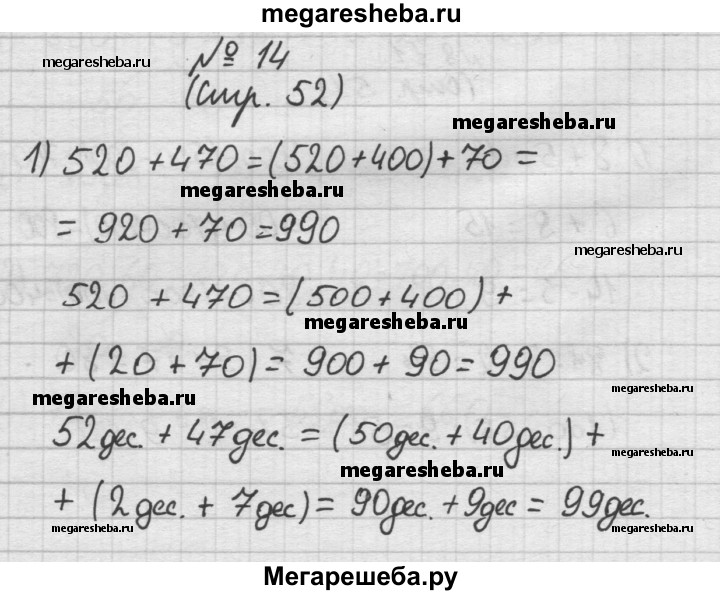 megaresheba.ru
№ 14
megaresheba.ru
(стр. 52)
megaresheba.ru
1) 520 + 470 = (520 + 400) + 70 =
megaresheba.ru
= 920 + 70 = 990
megaresheba.ru
520 + 470 = (500 + 400) +
megaresheba.ru
+ (20 + 70) = 900 + 90 = 990
megaresheba.ru
megaresheba.ru
52 дес. + 47 дес. = (50 дес. + 40 дес.) +
megaresheba.ru
megaresheba.ru
+ (2 дес. + 7 дес) = 90 дес. + 9 дес = 99 дес.
megaresheba.ru
megaresheba.ru
Мегарешеба.ру